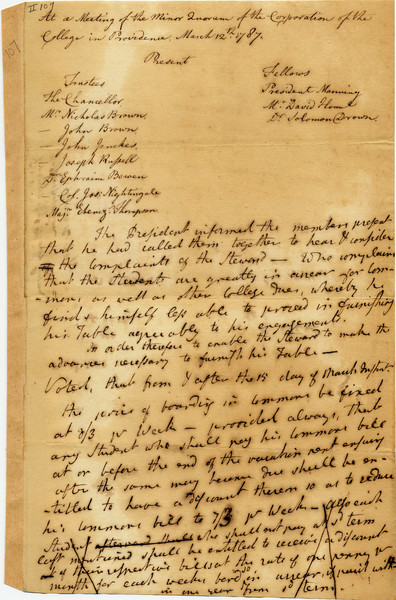 II 107
107
At a Meeting of the Minor Quorum of the Corporation of the
College in Providence, March 12th 1787.
Present
Trustees
The Chancellor
Mr. Nicholas Brown
— John Brown
— John Jenckes
— Joseph Russell
Dr. Ephraim Bowen
Col. Jos: Nightingale
Majr. Ebenezr Thompson
Fellows
President Manning
Mr. David Howell
Dr. Solomon Drown
The President informed the members present
that he had called them together to hear & consider
the complaints of the Steward — Who complains
that the Students are greatly in arrear for Com-
mons as well as other College dues, whereby he
finds himself less able to proceed in furnishing
his Table agreeably to his engagement.
In order therefore to enable the Steward to make the
advances necessary to furnish his Table —
Voted, that from & after the 15 day of March Instant
the price of boarding in commons be fixed
at 8/3 pr Week — provided always, that
any Student who shall pay his commons bill
at or before the end of the vacation next ensuing
after the same may become due shall be en-
titled to have a discount thereon so as to reduce
his commons bill to 7/3 pr Week — also each
Student who shall not pay at st term
last mentioned shall be entitled to receive a discount
of their respective bills at the rate of one penny pr
month for each weeks board in arrear if paid with
in one year from sd term.